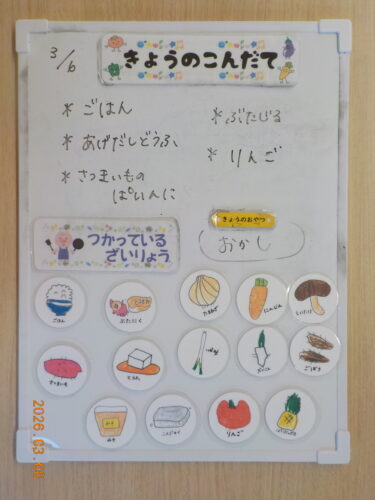 3/6
きょうのこんだて
* ごはん
* あげだしどうふ
* さつまいもの
ぱいんに
* ぶたじる
* りんご
きょうのおやつ
おかし
つかっている
ざいりょう
ごはん
ぶたにく
たまねぎ
にんじん
しいたけ
さつまいも
とうふ
ごぼう
みそ
みそ
こんにゃく
りんご
2026.03.06